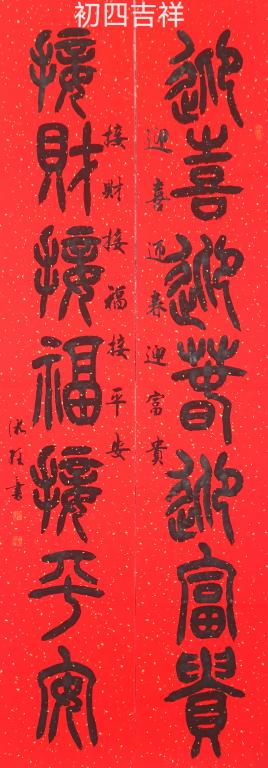 初四吉祥
迎喜迎春迎富貴
迎喜迎春迎富貴
接財接福接平安
接財接福接平安